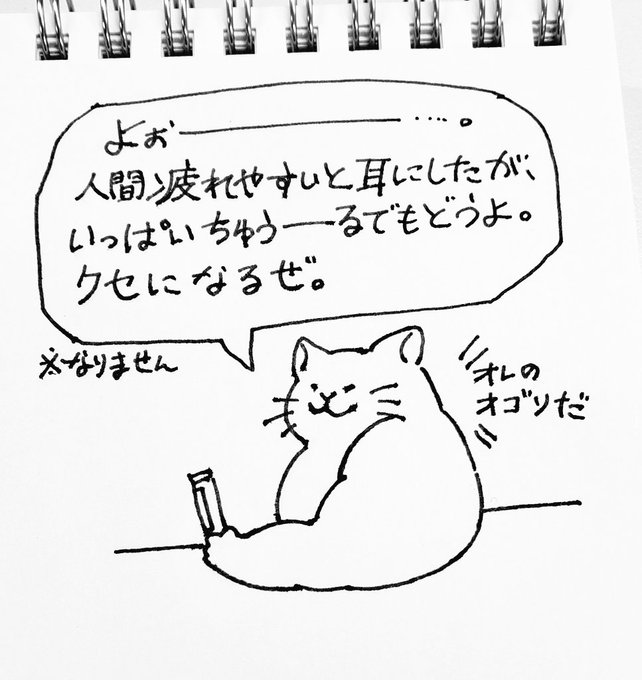 よぉ――――――‥‥。
人間疲れやすいと耳にしたが、
いっぱいちゅう――るでもどうよ。
クセになるぜ。
※なりません
オレの
オゴリだ